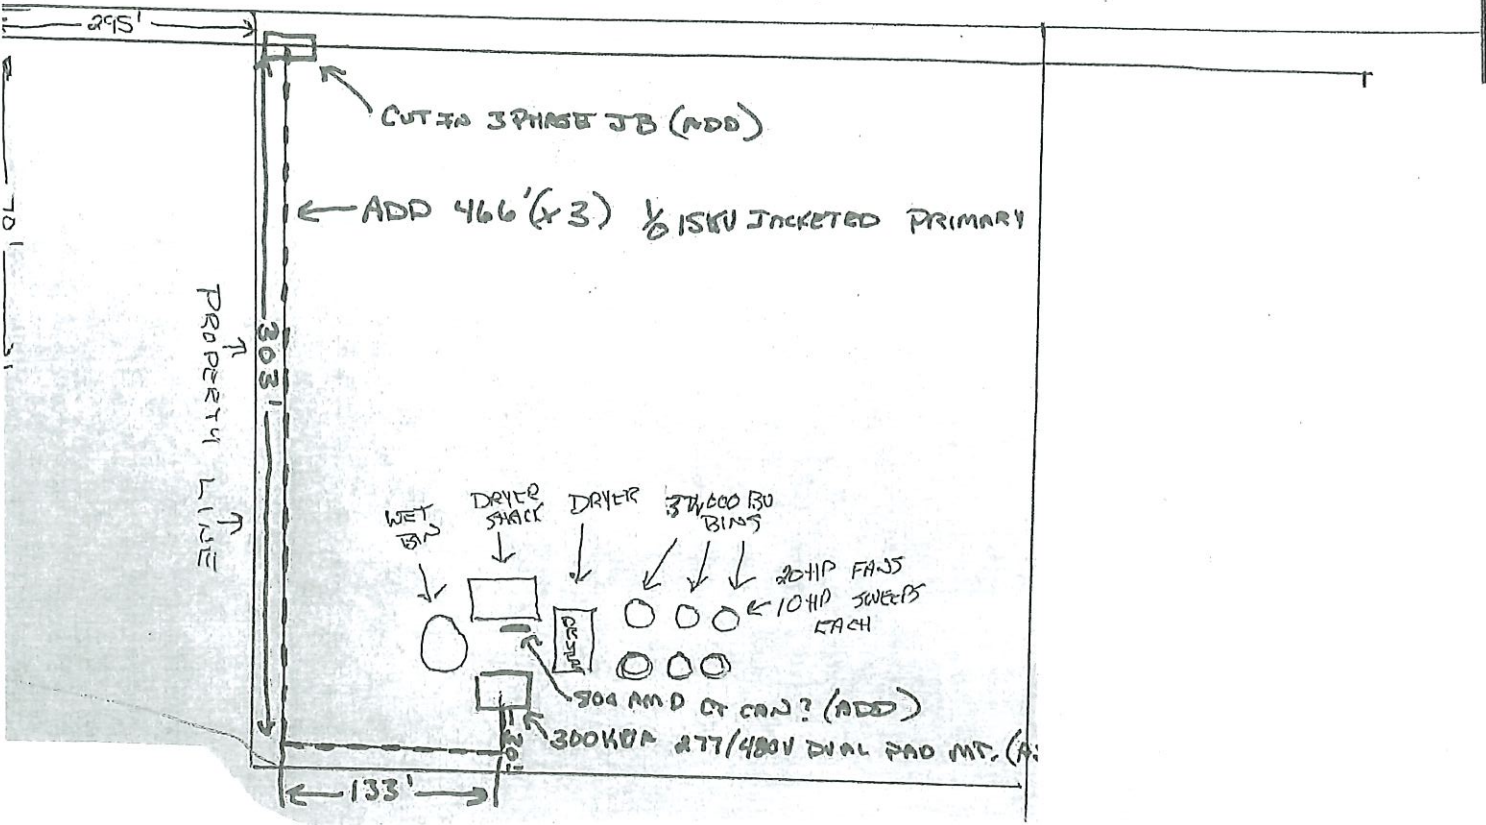 295'
CUT IN 3 PHASE JB (ADD)
ADD 466' (x3) 1/0 15KV JACKETED PRIMARY
70'
303'
PROPERTY LINE
WET
BIN
DRYER
SHACK
DRYER
BU
BINS
20HP FANS
10HP SWEEPS
EACH
DRYER
800 AMP CT CAN? (ADD)
300KVA 277/480V DUAL PAD MT.
30'
133'